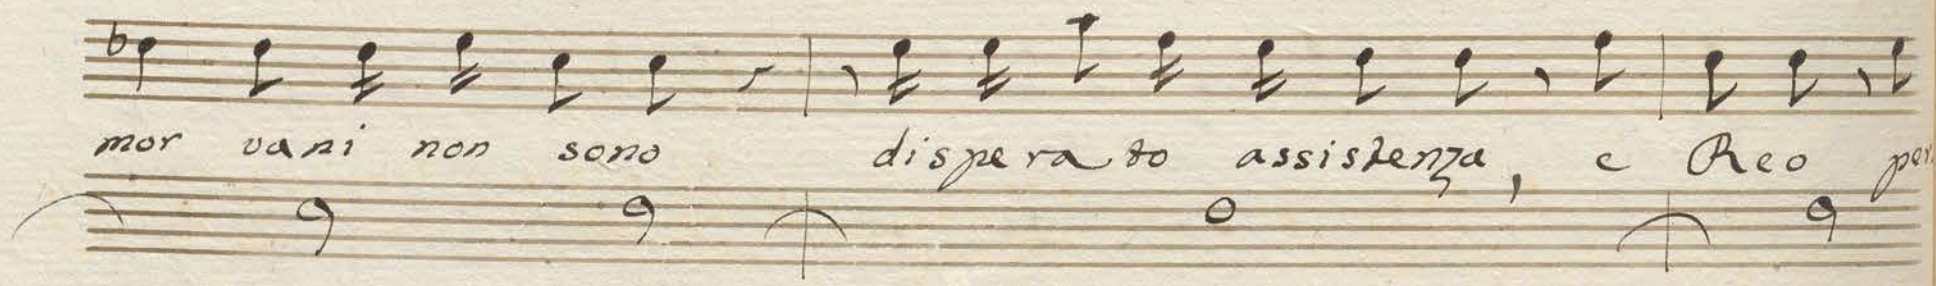 mor vani non sono disperato assistenza, e Reo per